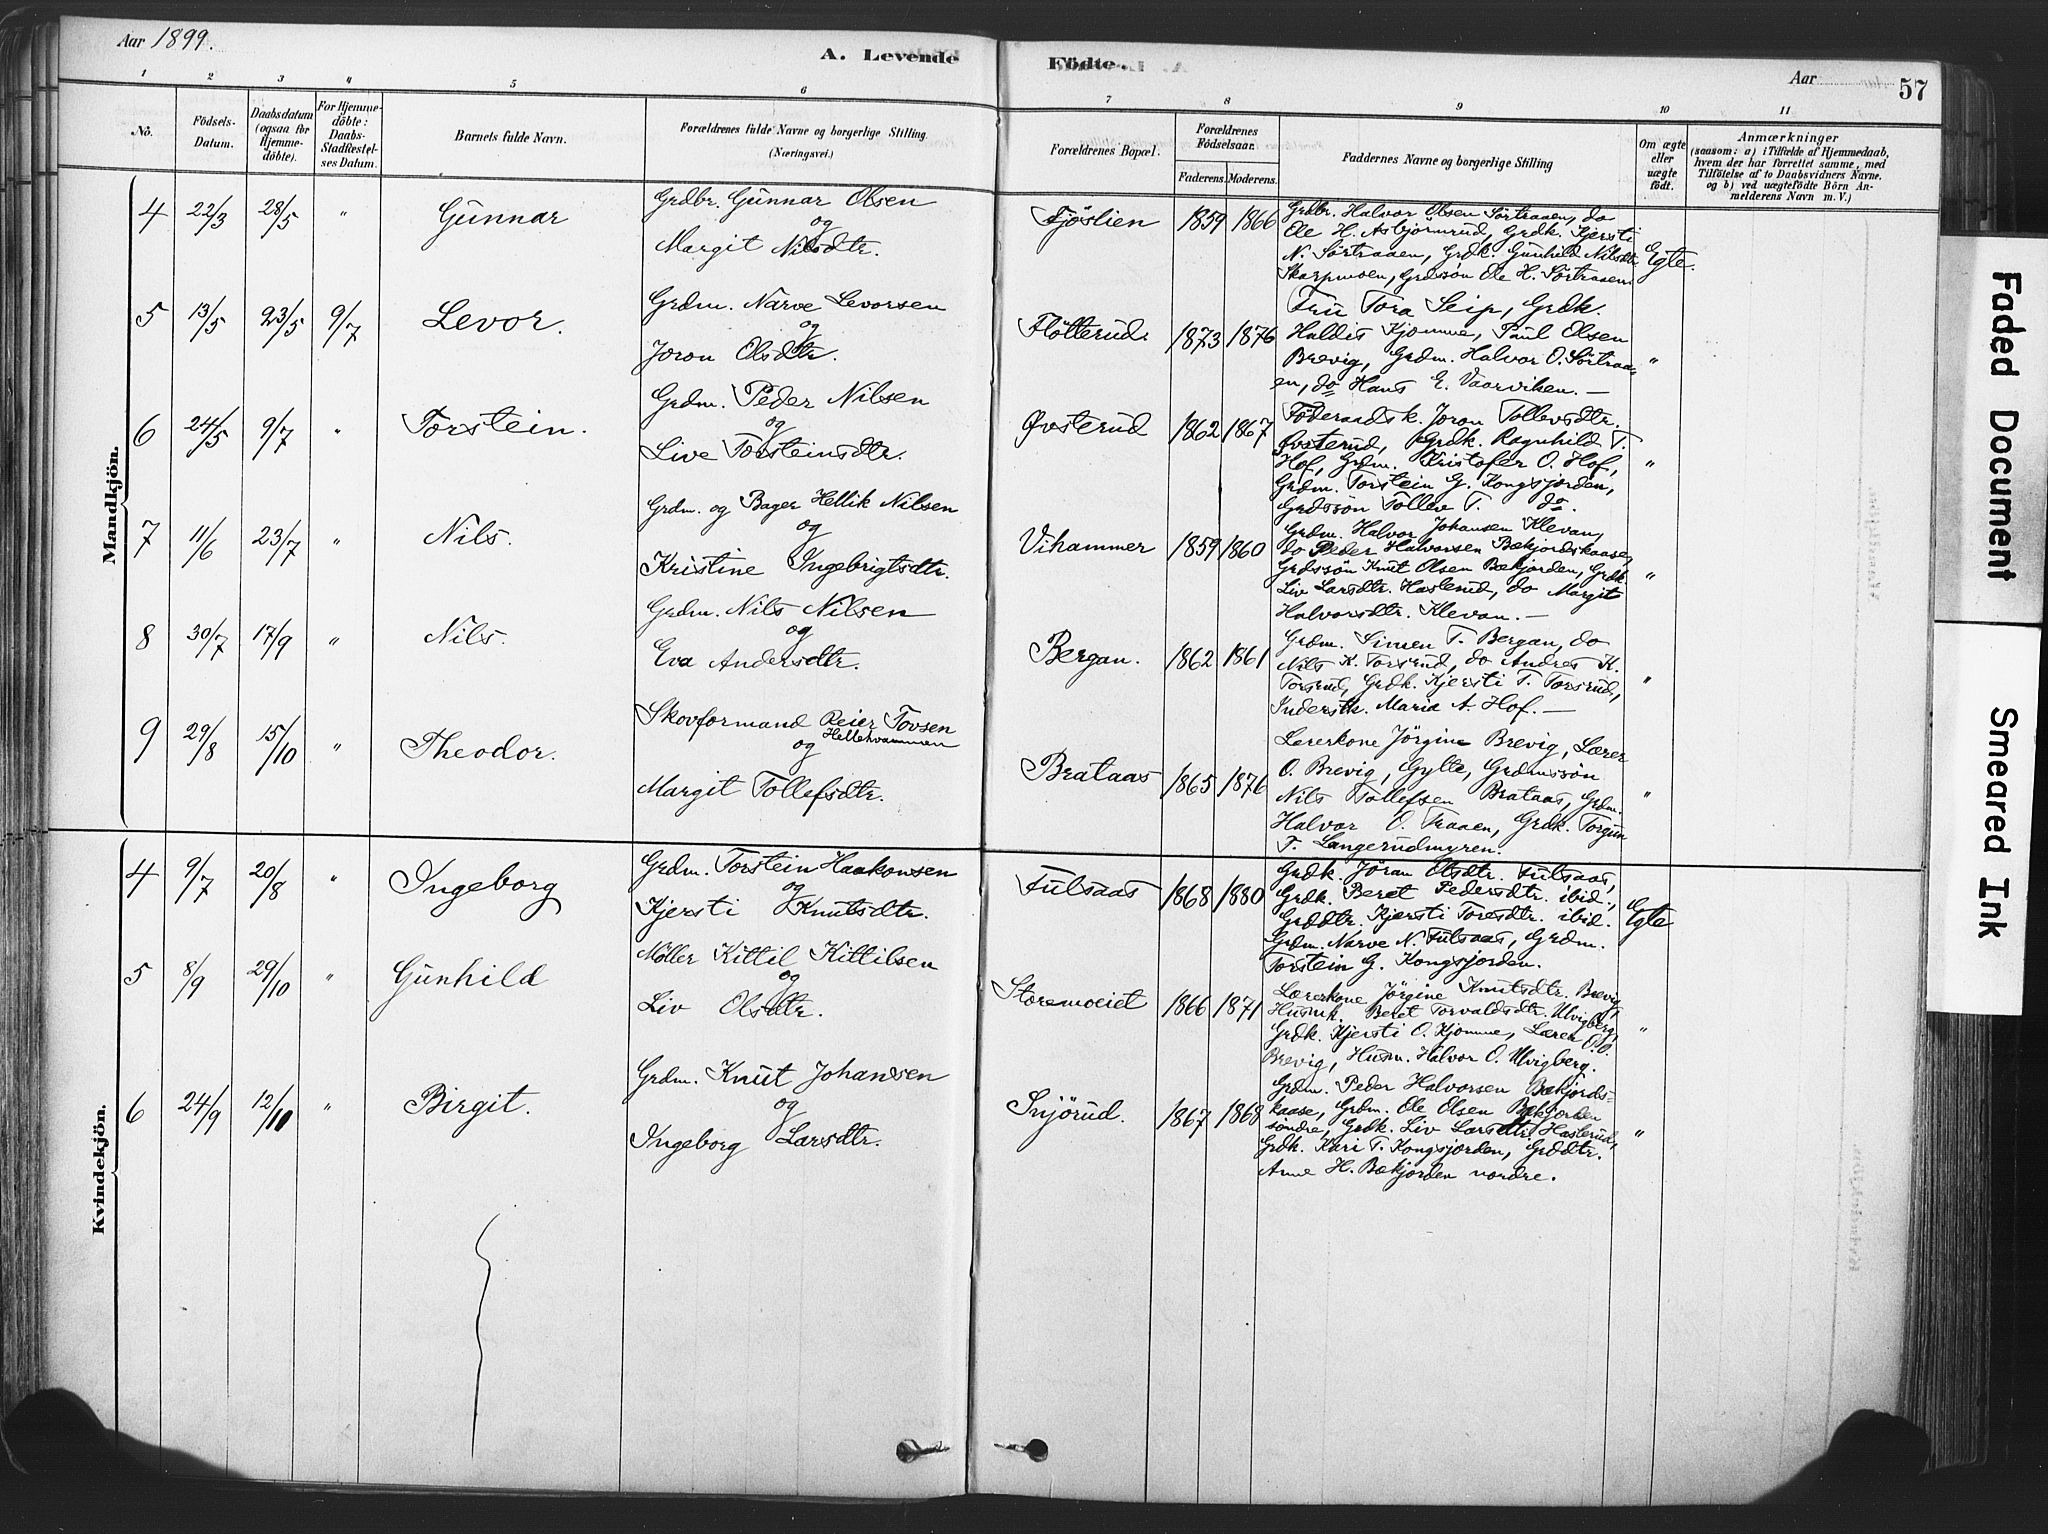 Aar 1899.
A. Levende
Födte.
Aar
57
1
2
3
"
5
6
7
8
9
10
11
No.
Födsels-
Datum.
Daabsdatum
(ogsaa for
Hjemme-
döbte).
For Hjemme-
döbte:
Daabs-
Stadfestel-
ses Datum.
Barnets fulde Navn.
Forældrenes fulde Navne og borgerlige Stilling.
(Næringsvei.)
Forældrenes Bopæl.
Forældrenes
Födselsaar.
Faderens.
Moderens.
Faddernes Navne og borgerlige Stilling
Om ægte
eller
uægte
födt.
Anmærkninger
(saasom: a) i Tilfælde af Hjemmedaab,
hvem der har forrettet samme, med
Tilföielse af to Daabsvidners Navne.
og b) ved uægtefödte Börn An-
melderens Navn m.V.)
Mandkjön.
4 22/3 28/5 " Gunnar
Grdbr. Gunnar Olsen
og
Margit Nilsdtr.
Fjöslien 1859 1866
Grdbr. Halvor Olsen Sörtraaen, do
Ole H. Asbjörnrud, Grdk. Kjersti
N. Sörtraaen, Grdk. Gunhild Nilsdtr.
Skarpmoen, Grdssön Ole H. Sörtraaen.
Egte.
5 13/5 23/5 9/7 Levor.
Grdm. Narve Levorsen
og
Joron Olsdtr.
Flötterud. 1873 1876
Fru Tora Seip, Grdk.
Haldis Kjomme, Paul Olsen
Brevig, Grdm. Halvor O. Sörtraa-
en, do Hans E. Vaarviken. —
"
6 24/5 9/7 " Torstein.
Grdm. Peder Nilsen
og
Live Torsteinsdtr.
Øvsterud 1862 1867
Föderaadsk. Joron Tollevsdtr.
Øvsterud, Grdk. Ragnhild T.
Hof, Grdm. Kristofer O. Hof,
Grdm. Torstein G. Kongsjorden,
Grdssön Tollev T. do.
"
7 11/6 23/7 " Nils.
Grdm. og Bager Hellik Nilsen
og
Kristine Ingebrigtsdtr.
Vihammer 1859 1860
Grdm. Halvor Johansen Klevan,
do Peder Halvorsen Bækjordskaase,
Grdssön Knut Olsen Bækjorden, Grdk.
Liv Larsdtr. Haslerud, do Margit
Halvorsdtr. Klevan. —
"
8 30/7 17/9 " Nils.
Grdm. Nils Nilsen
og
Eva Andersdtr.
Bergan. 1862 1861
Grdm. Simen T. Bergan, do
Nils K. Torsrud, do Andres K.
Torsrud, Grdk. Kjersti T. Torsrud,
Inderstk. Maria A. Hof. —
"
9 29/8 15/10 " Theodor.
Skovformand Reier Tovsen
Hellekvammen
og
Margit Tollefsdtr.
Brataas 1865 1876
Lærerkone Jörgine Brevig, Lærer
O. Brevig, Gylte, Grdmssön
Nils Tollefsen Brataas, Grdm.
Halvor O. Traaen, Grdk. Torgun
T. Langerudmyren.
"
Kvindekjön.
4 9/7 20/8 " Ingeborg
Grdm. Torstein Haakonsen
og
Kjersti Knutsdtr.
Fulsaas 1868 1880
Grdk. Jöran Olsdtr. Fulsaas,
Grdk. Beret Pedersdtr. ibid.,
Grddtr. Kjersti Toresdtr. ibid.
Grdm. Narve N. Fulsaas, Grdm.
Torstein G. Kongsjorden.
Egte
5 8/9 29/10 " Gunhild
Møller Kittil Kittilsen
og
Liv Olsdtr.
Storemoeiet 1866 1871
Lærerkone Jörgine Knutsdtr. Brevig,
Husmk. Beret Torvaldsdtr. Ulvigberg,
Grdk. Kjersti O. Kjomme, Lærer O. O.
Brevig, Husm. Halvor O. Ulvigberg.
"
6 24/9 12/10 " Birgit.
Grdm. Knut Johansen
og
Ingeborg Larsdtr.
Snjörud. 1867 1868
Grdm. Peder Halvorsen Bækjords-
kaase, Grdm. Ole Olsen Bækjorden
söndre, Grdk. Liv Larsdtr. Haslerud,
Grdk. Kari T. Kongsjorden, Grddtr.
Anne H. Bækjorden nordre.
"
Faded Document
Smeared Ink